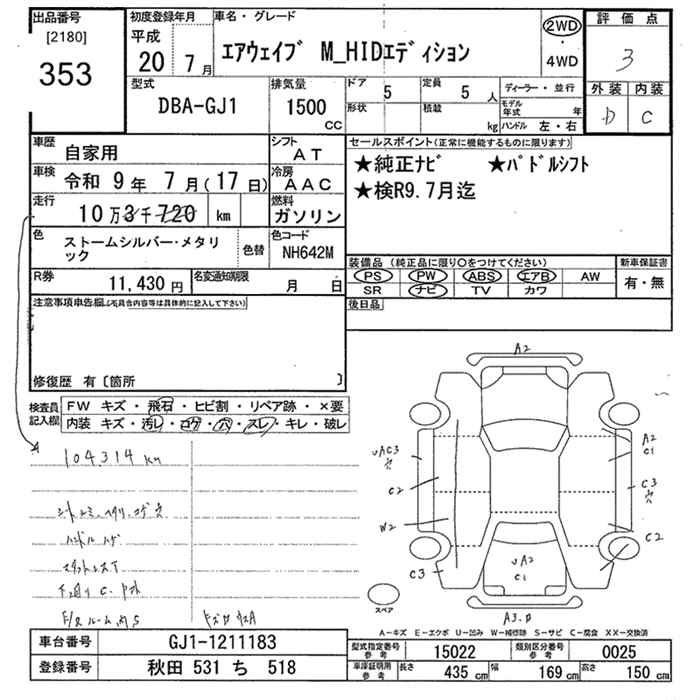 出品番号
[2180]
353
初度登録年月
平成
20 7月
車名・グレード
エアウェイブ M_HIDエディション
2WD
・
4WD
評価点
3
外装 内装
D C
型式
DBA-GJ1
排気量
1500
CC
ドア 5
定員 5 人
形状
積載 kg
ディーラー・並行
モデル年式 年
ハンドル 左・右
車歴
自家用
シフト
AT
車検
令和 9年 7月(17日)
冷房
AAC
走行
10万3千720 km
燃料
ガソリン
色
ストームシルバー・メタリック
色替
色コード
NH642M
R券
11,430円
名変通知期限
月 日
セールスポイント(正常に機能するものに限ります)
★純正ナビ ★パドルシフト
★検R9.7月迄
装備品(純正品に限り○をつけてください)
新車保証書
PS PW ABS エアB AW
SR ナビ TV カワ
有・無
後日品
注意事項申告欄(不具合内容等は具体的に記入して下さい)
修復歴 有〔箇所 〕
検査員記入欄
FW キズ・飛石・ヒビ割・リペア跡・×要
内装 キズ・汚レ・コゲ・穴・スレ・キレ・破レ
104,314km
A2
A2
C1
C3
C2
W2
C3
C3
C2
A2
C1
スペア
A-キズ E-エクボ U-凹み W-補修跡 S-サビ C-腐食 XX-交換済
車台番号 GJ1-1211183
登録番号 秋田 531 ち 518
型式指定番号 参考 15022
類別区分番号 参考 0025
車庫証明用 参考 長さ 435 cm 幅 169 cm 高さ 150 cm